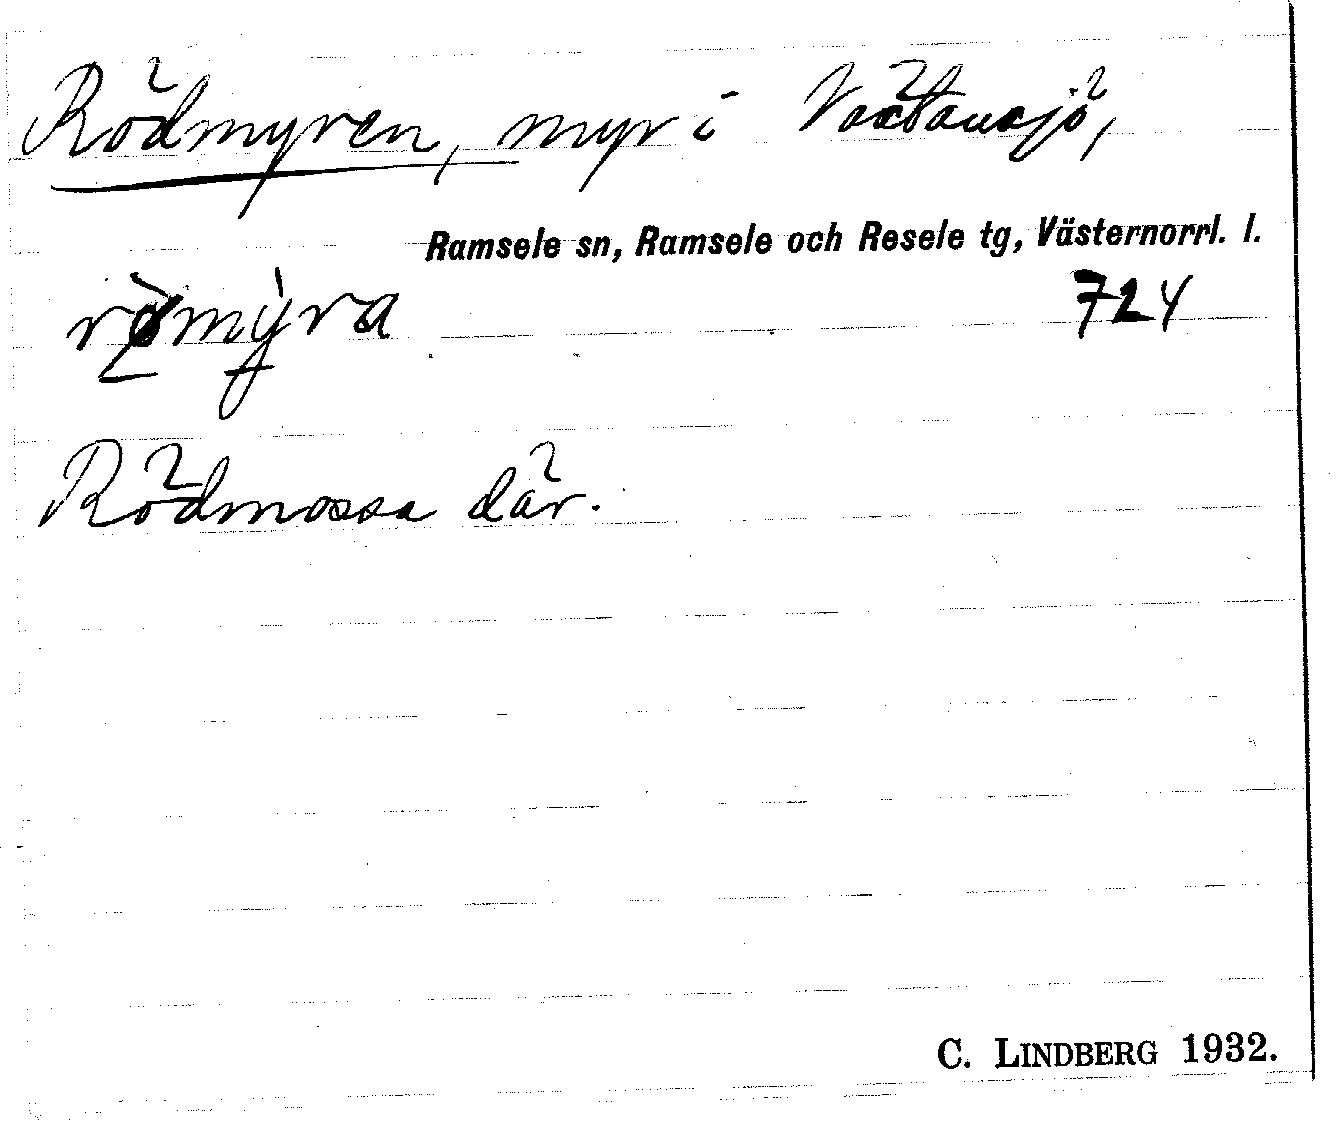 Rödmyren, myr i Västansjö,
Ramsele sn, Ramsele och Resele tg, Västernorrl. l.
724
Rödmossa där.
C. LINDBERG 1932.